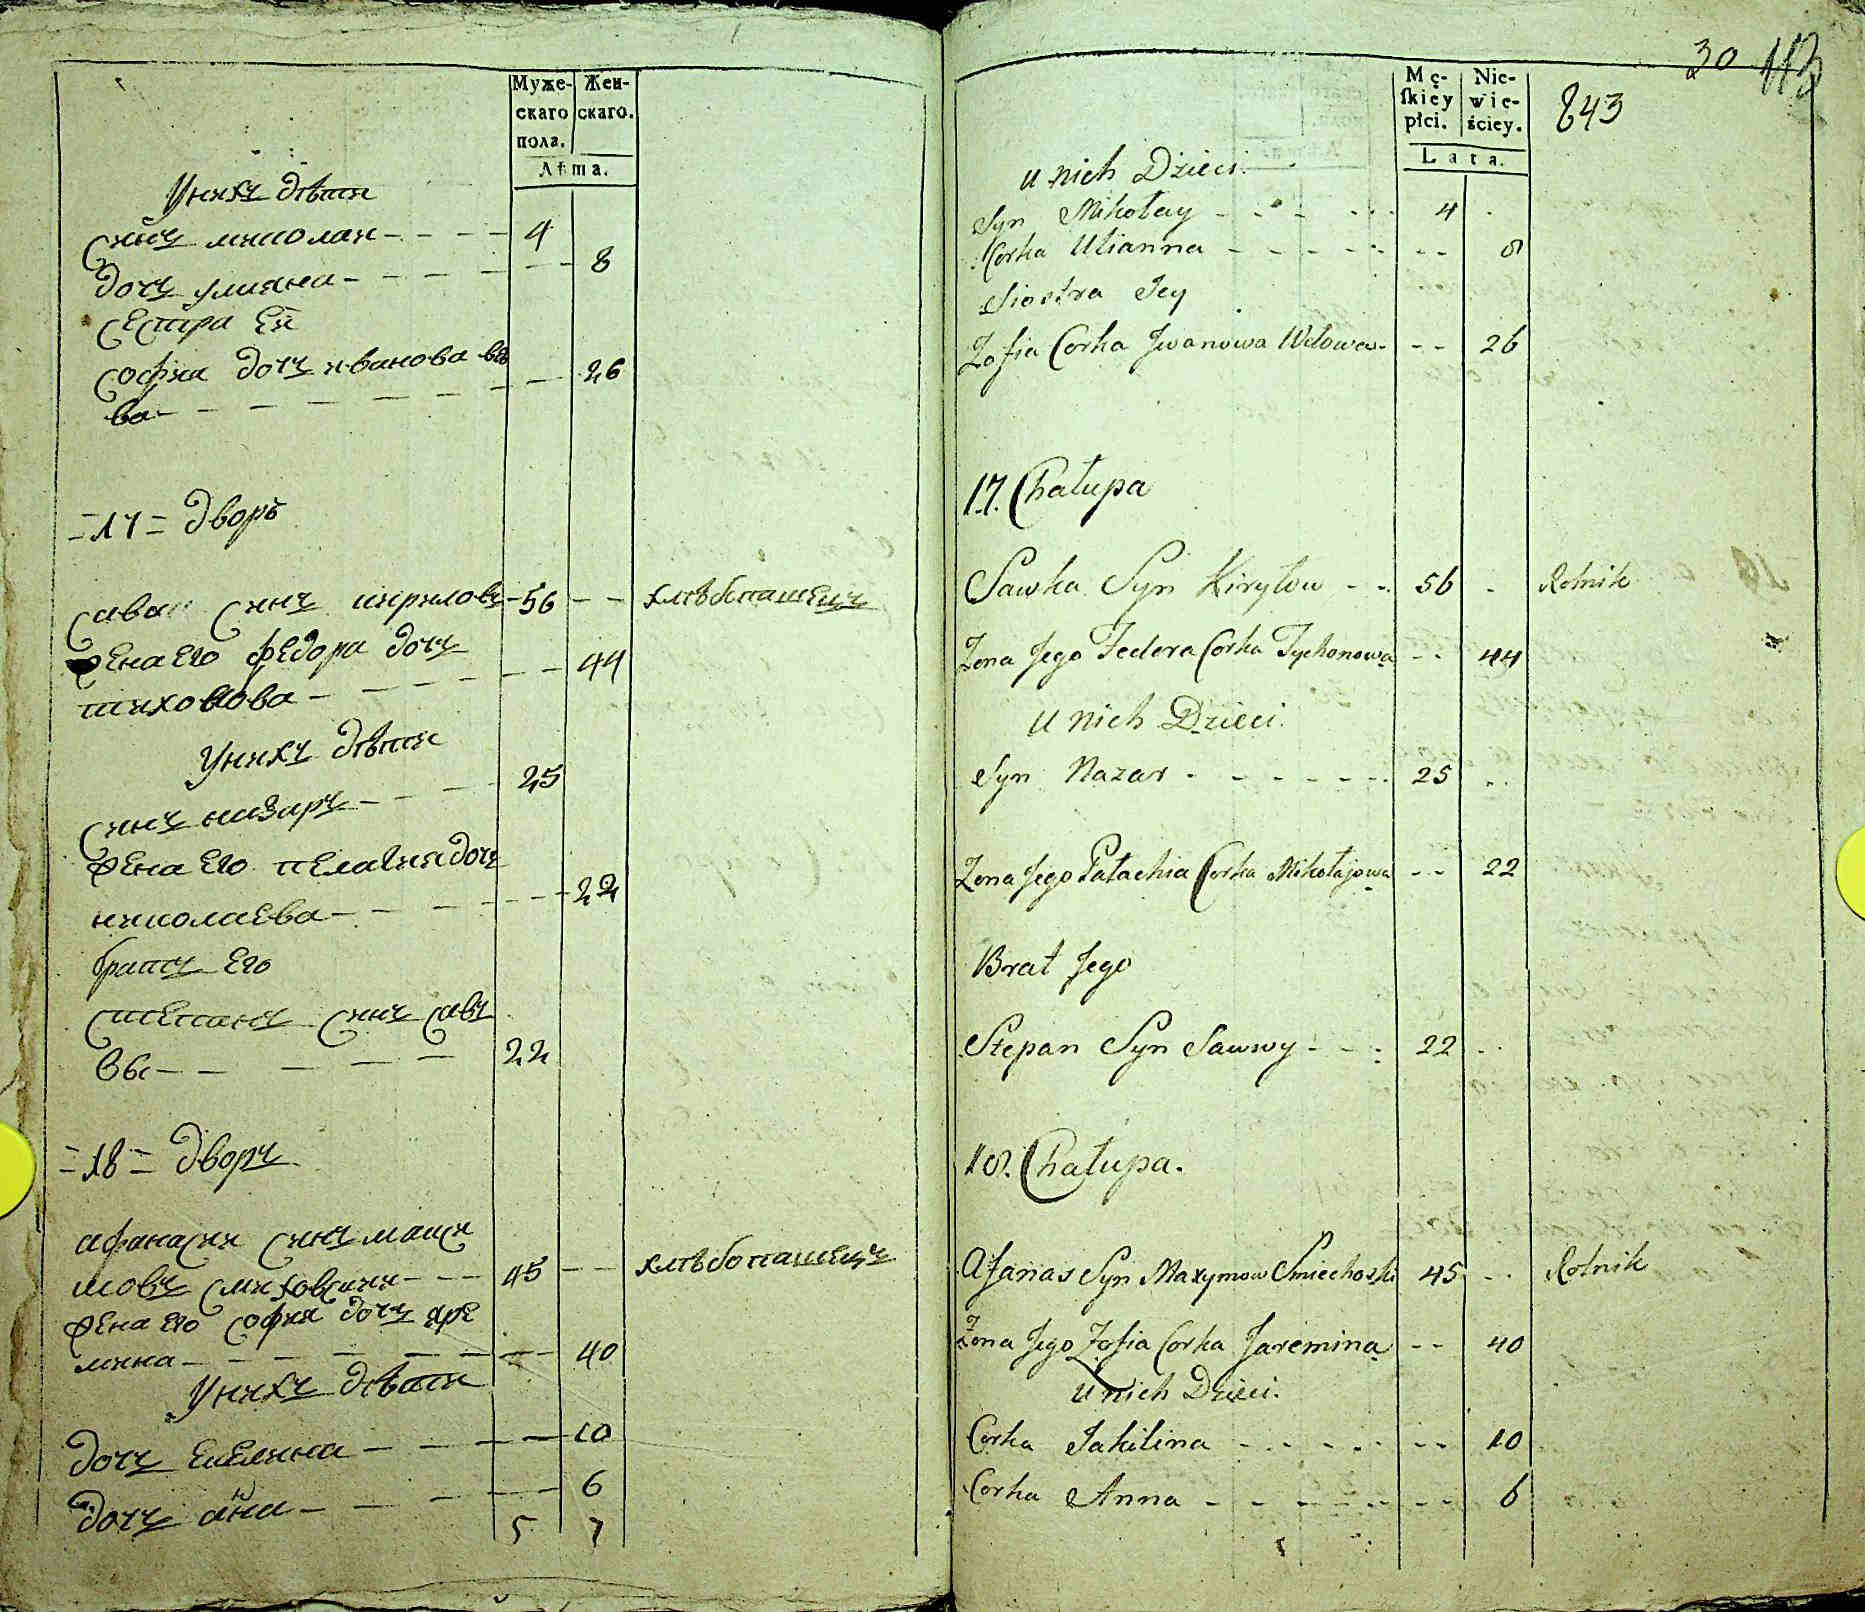 Муже-
скаго
пола.
Жен-
скаго.
Лѣта.
Унихъ дѣти
Синъ миколаи - - - - 4
дочъ улияна - - - - - 8
Сестра Еи
София дочъ иванова вдо
ва - - - - - - - - 26
= 17 = дворъ
Сава Синъ кириловъ - 56 - - хлѣбопашецъ
жена его федора дочъ
тихонова - - - - - 44
Унихъ дѣти
Синъ назаръ - - - - 25
жена его пелагия дочъ
николаева - - - - - 22
братъ его
Степанъ Синъ Савъ
вы - - - - - 22
= 18 = дворъ
афанасии Синъ макси
мовъ Смиховский - - - 45 - - хлѣбопашецъ
жена его София дочъ яре
мина - - - - - - - 40
Унихъ дѣти
дочъ екелина - - - - 10
дочъ анна - - - - - 6
5 7
30 113
Mę-
skiey
płci.
Nie-
wie-
ściey.
843
Lata.
u nich Dzieci
Syn Mikołay - - - - - 4
Corka Ulianna - - - - - - - 8
Siostra Jey
Zofia Corka Jwanowa Wdowa - - - 26
17. Chałupa
Sawka Syn Kiryłow - - 56 - Rolnik
Zona Jego Fedora Corka Tychonowa - - 44
u nich Dzieci
Syn Nazar - - - - - - - 25
Zona Jego Pałachia Corka Mikołajowa - - 22
Brat Jego
Stepan Syn Sawwy - - - 22
18. Chałupa.
Afanas Syn Maxymow Smiechoski 45 - - Rolnik
Zona Jego Zofia Corka Jaremina - - 40
u nich Dzieci.
Corka Jakilina - - - - - - - 10
Corka Anna - - - - - - - - 6